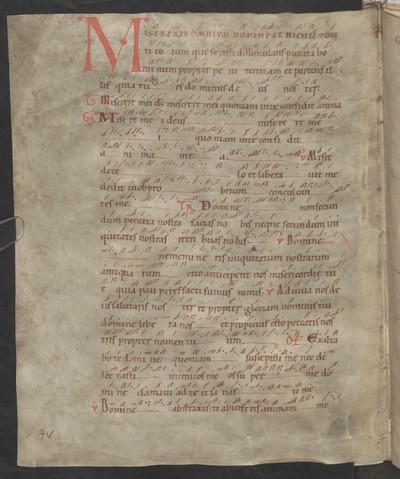 MISERERIS OMNIUM DOMINE ET NICHIL ODIS
ti eo rum que fecisti dissimulans peccata ho
mi num propter pe ni tentiam et parcens il
lis quia tu es do minus de us nos ter
Ps Miserere mei deus miserere mei quoniam in te confidit anima
GR Mise re re mei deus miserere re me
i quoniam in te confi dit
a ni ma me a V Misit
de ce lo et libera vit me
dedit in obpro brium conculcan
tes me TR Domine non secun
dum peccata nostra facias no bis neque secundum ini
quitates nostras retri buas no bis V Domine
ne memi ne ris iniquitatum nostrarum
antiqua rum cito anticipent nos misericordie tu
e quia pau peres facti sumus nimis V Adiuva nos de
us salutaris nos ter et propter gloriam nominis tui
domine libe ra nos et propicius esto peccatis nos
tris propter nomen tu um OF Exalta
bo te domi ne quoniam suscepisti me nec de
lec tasti inimicos me os su per me do
mi ne clamavi ad te et sa nas ti me
V Domine abstraxisti ab inferis animam me
7v